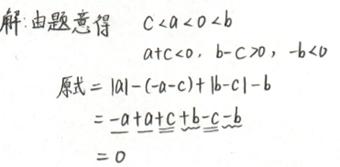 解:由题意得 c<a<0<b
a+c<0, b-c>0, -b<0
原式=|a|-(-a-c)+|b-c|-b
=-a+a+c+b-c-b
=0